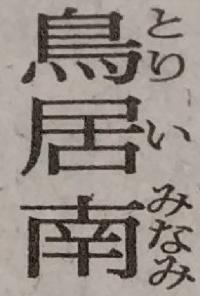 鳥居南
とりいみなみ